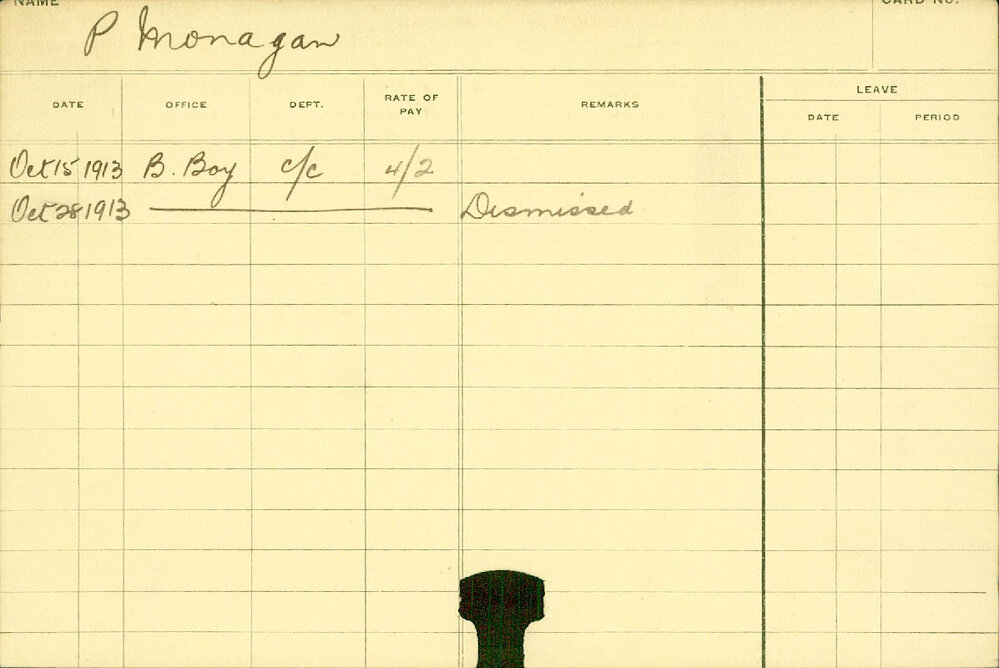 NAME
CARD NO.
P Monagan
DATE OFFICE DEPT. RATE OF PAY REMARKS LEAVE
DATE PERIOD
Oct 15 1913 B. Boy c/c 4/2
Oct 28 1913 Dismissed